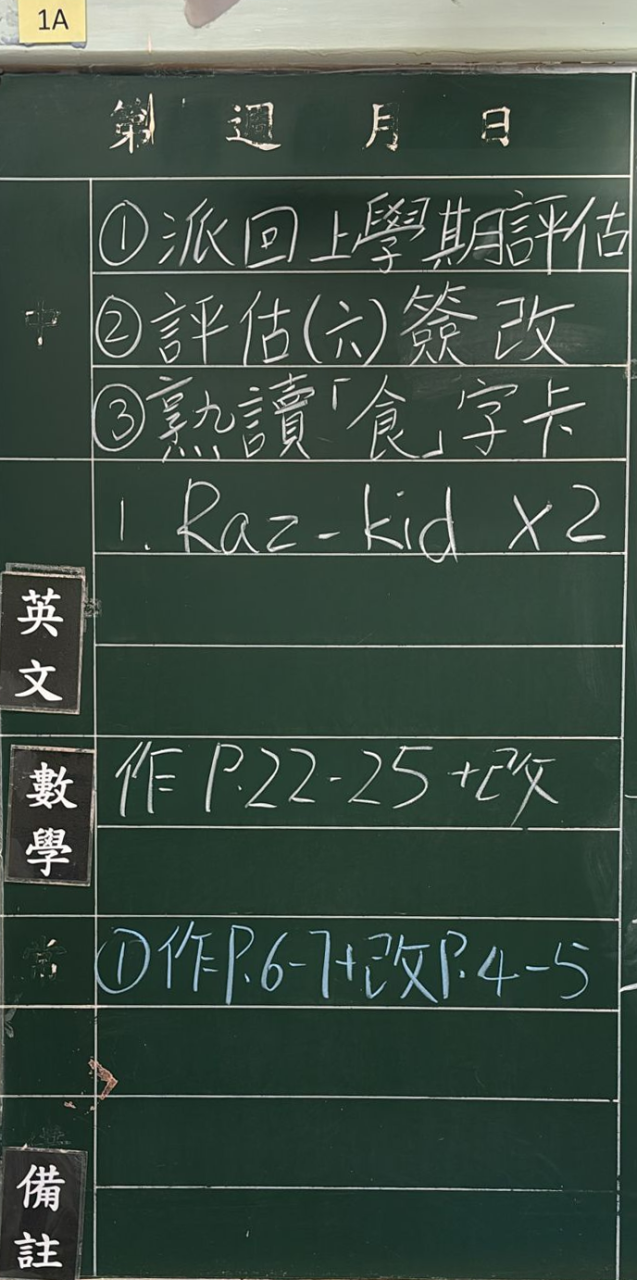 1A
第 週 月 日
中
①派回上學期評估
②評估(六)簽改
③熟讀「食」字卡
英文
1. Raz-kid x2
數學
作 P.22-25 +改
常
①作P.6-7+改P.4-5
備註